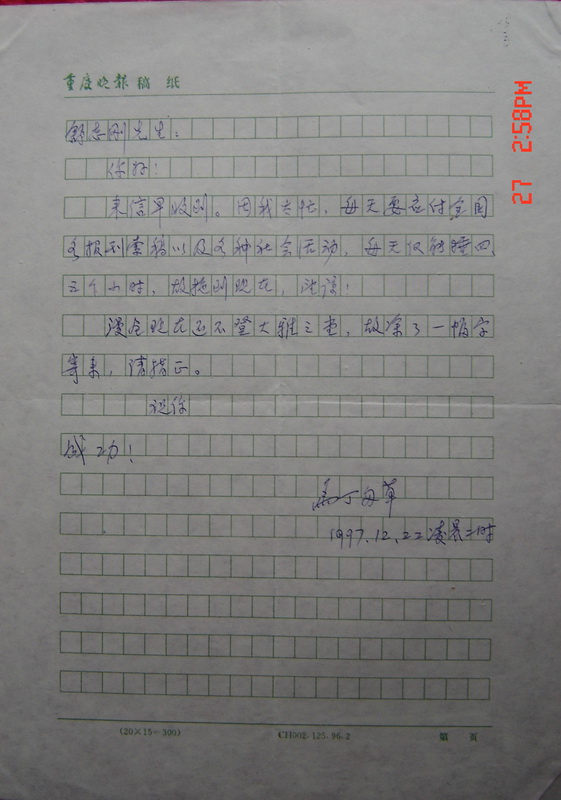 重庆晚报稿纸
舒志刚先生:
你好!
来信早收到。因我太忙,每天要应付全国
各报刊索稿以及各种社会活动,每天仅能睡四、
五个小时,故拖到现在,致误!
漫画现在还不登大雅之堂,故涂了一幅字
寄来,请指正。
祝你
成功!
马丁 草
1997.12.22凌晨二时
(20×15=300)
CH002.125.96.2
第 页
27 2:58PM